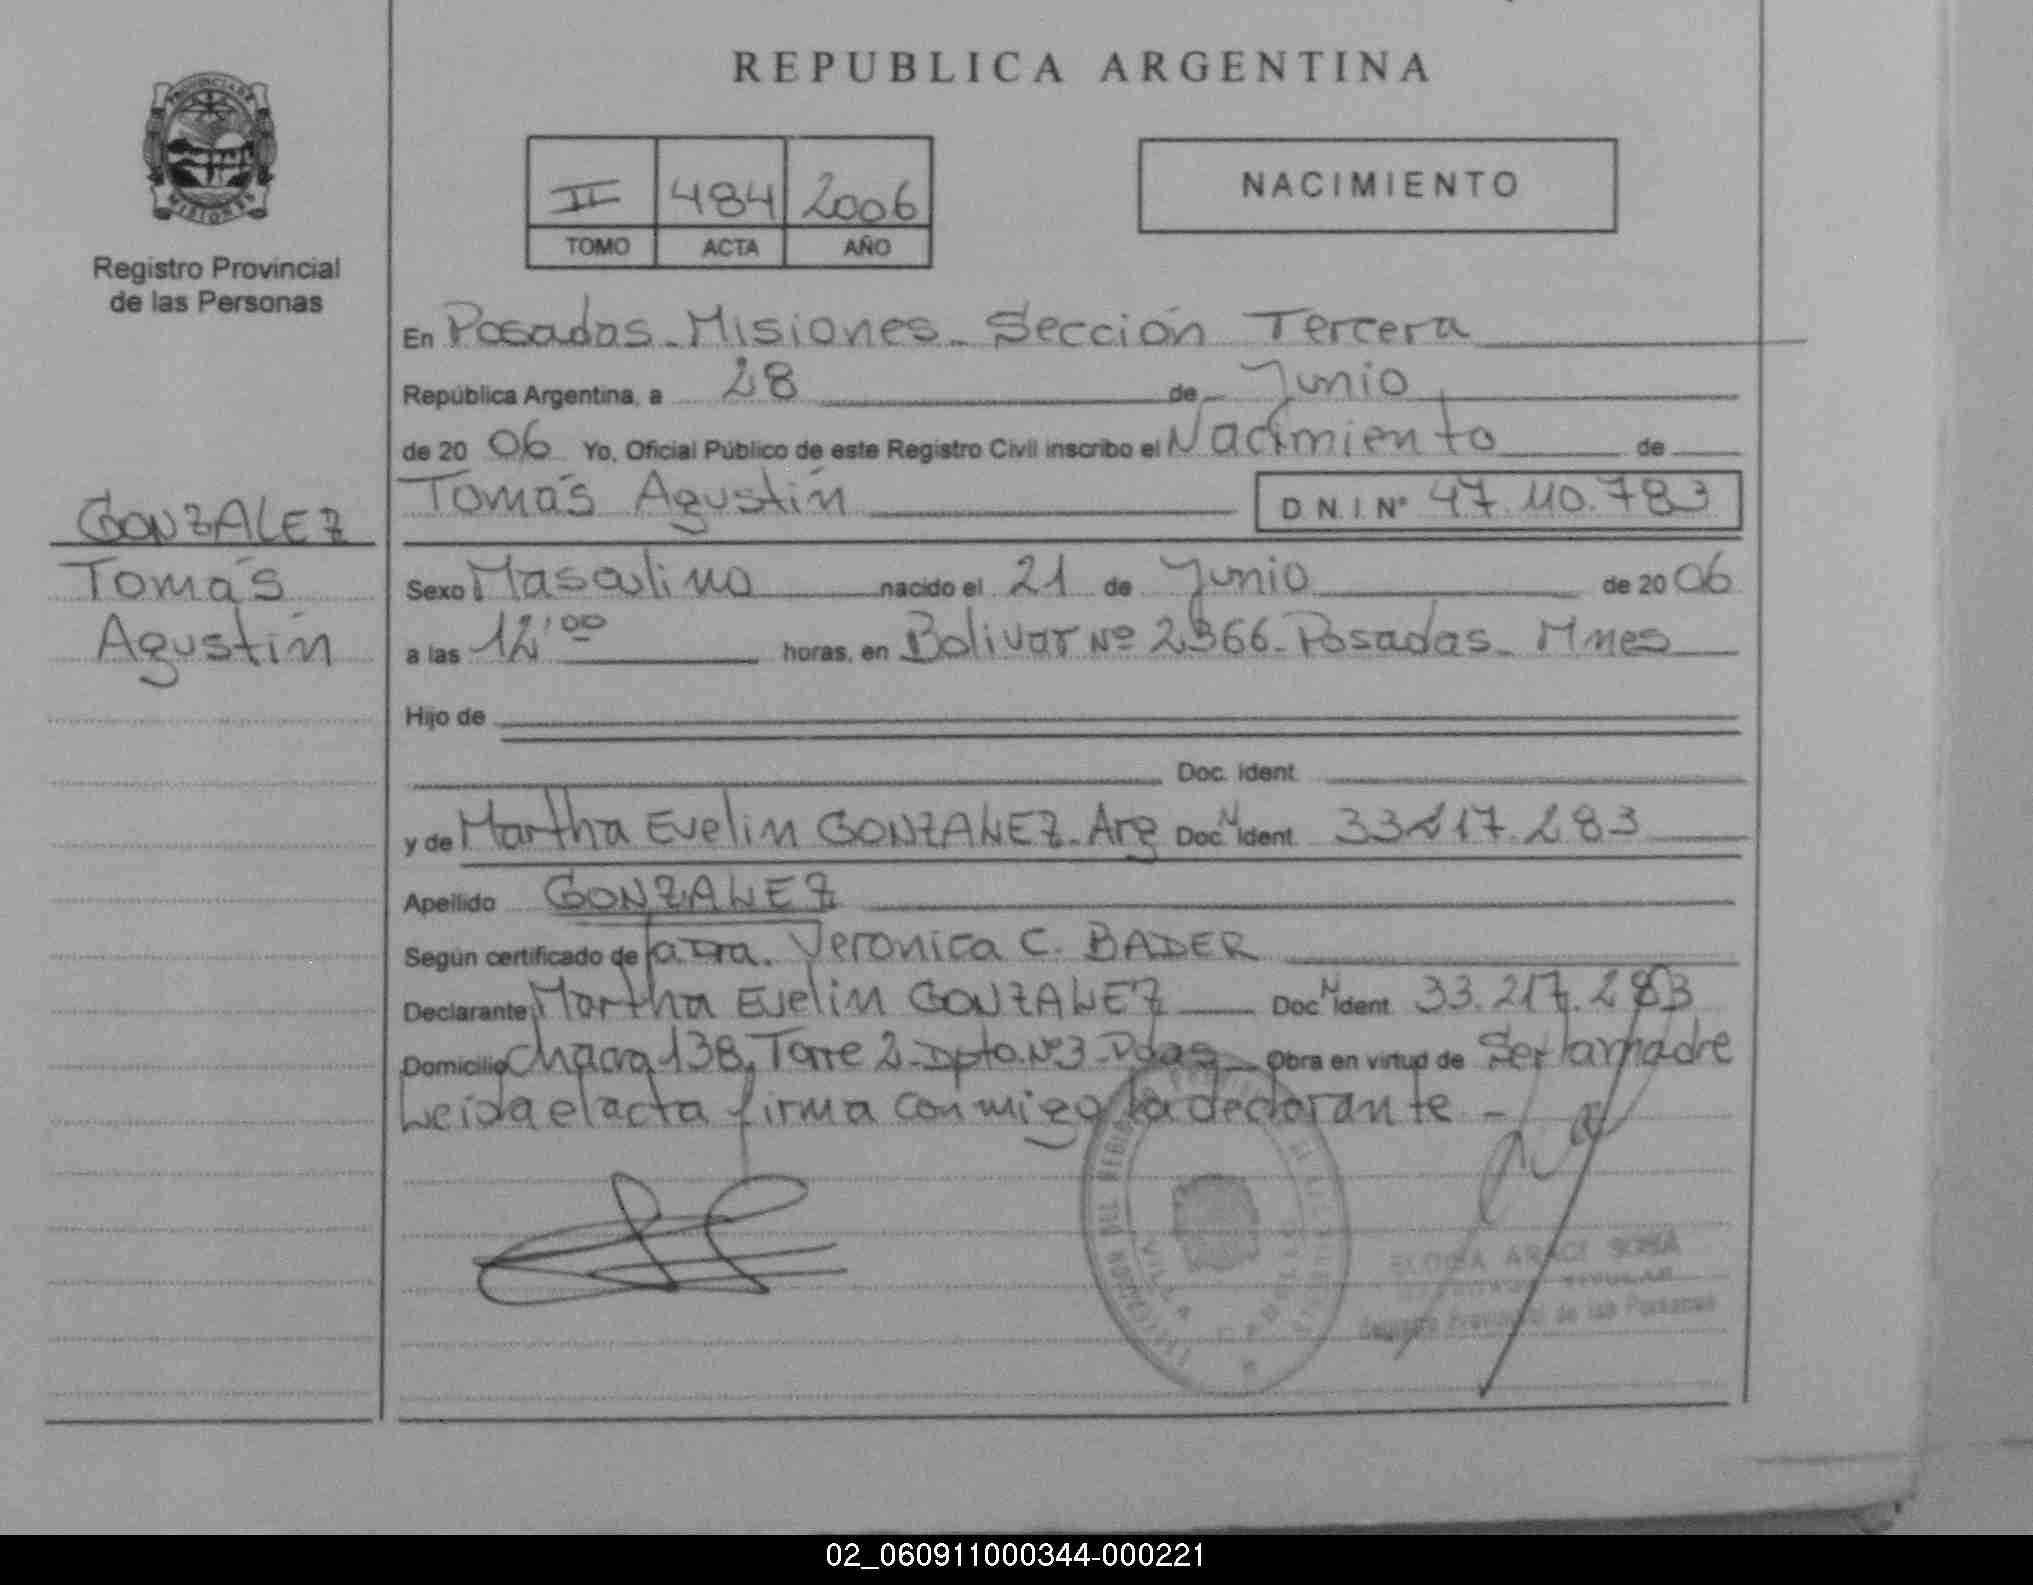 REPUBLICA ARGENTINA
PROVINCIA DE
MISIONES
Registro Provincial
de las Personas
II 484 2006
TOMO ACTA AÑO
NACIMIENTO
En Posadas - Misiones - Sección Tercera
República Argentina, a 28 de Junio
de 20 06 Yo, Oficial Público de este Registro Civil inscribo el Nacimiento de
Tomás Agustín D.N.I. N° 47.110.783
GONZALEZ
Tomás
Agustín
Sexo Masculino nacido el 21 de Junio de 20 06
a las 12'00 horas, en Bolivar Nº 2366 - Posadas - Mnes
Hijo de
Doc. Ident.
y de Martha Evelin GONZALEZ - Arg Doc. N Ident. 33217.283
Apellido GONZALEZ
Según certificado de la Dra. Veronica C. BADER
Declarante Martha Evelin GONZALEZ Doc. N Ident. 33.217.283
Domicilio Chacra 138, Torre 2 - Dpto. Nº 3 - Pdas - Obra en virtud de Ser la madre
Leída el acta firma conmigo la declarante -
ARACI
Provincial de las Personas
02_060911000344-000221